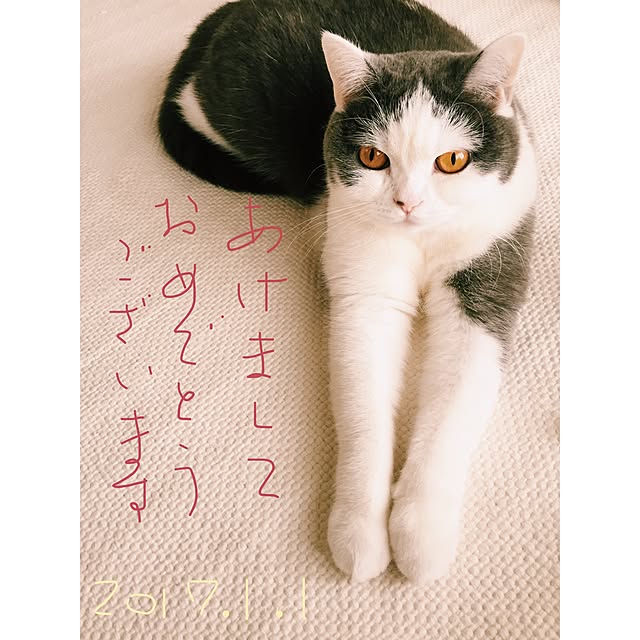 あけまして
おめでとう
ございます
2017.1.1